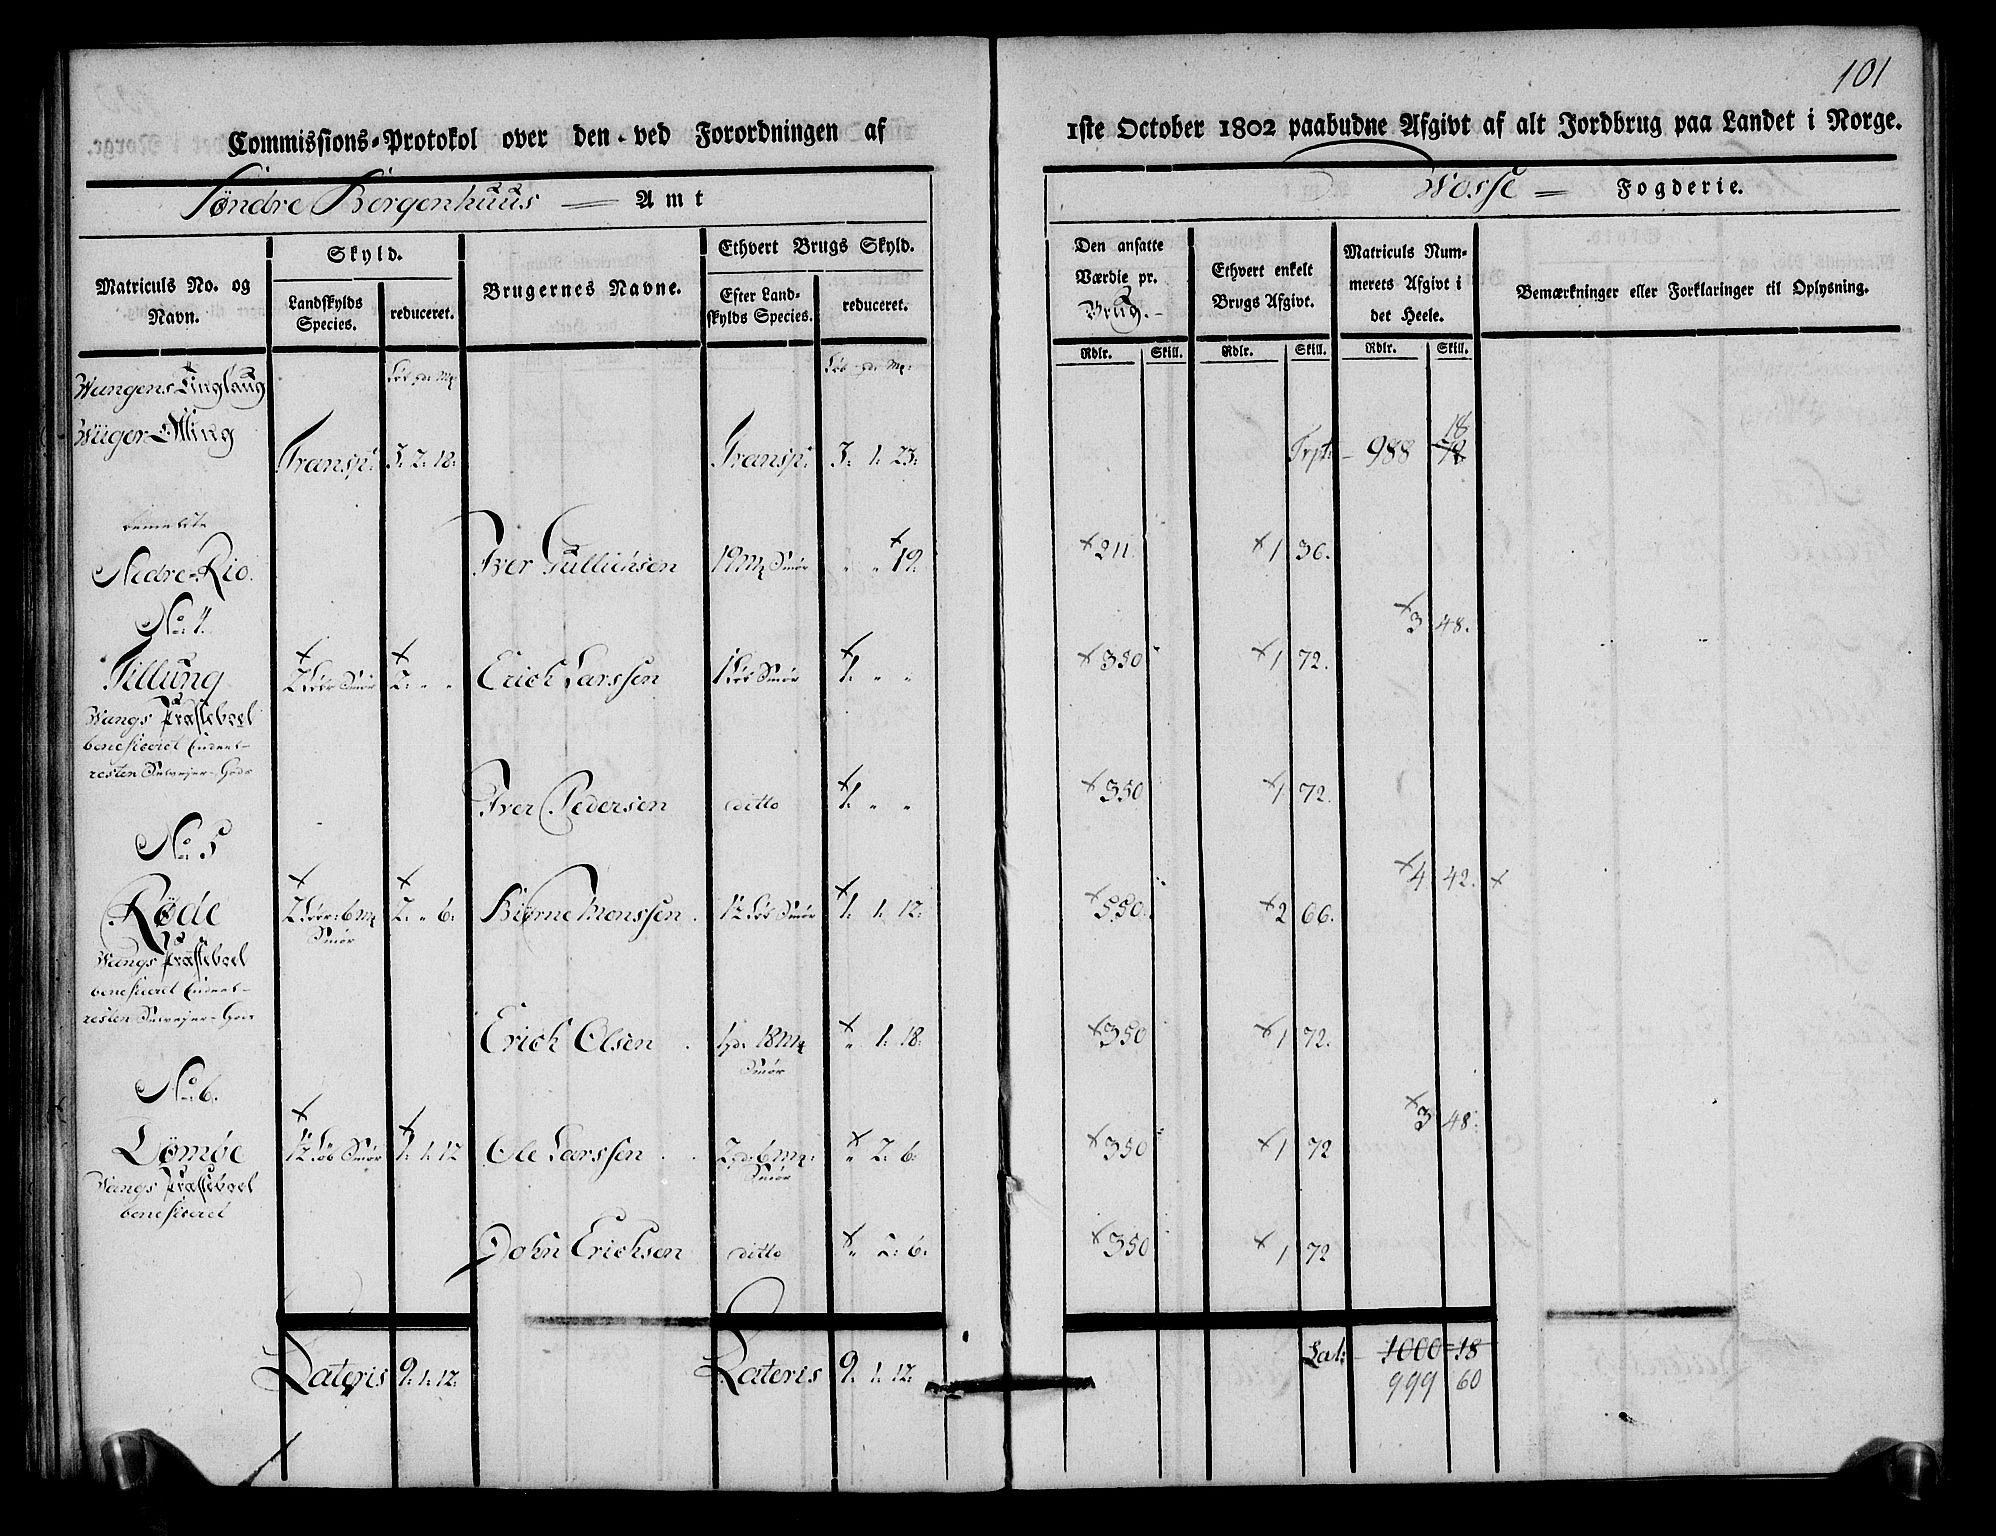 101
Commissions-Protokol over den ved Forordningen af 1ste October 1802 paabudne Afgivt af alt Jordbrug paa Landet i Norge.
Søndre Bergenhuus Amt Wosse Fogderie.
Matriculs No. og Navn.
Skyld.
Landskylds Species.
reduceret.
Brugernes Navne.
Ethvert Brugs Skyld.
Efter Landskylds Species.
reduceret.
Den ansatte Værdie pr. Brug.
Ethvert enkelt Brugs Afgivt.
Matriculs Nummerets Afgivt i det Heele.
Bemærkninger eller Forklaringer til Oplysning.
Rdlr. Skill. Rdlr. Skill. Rdlr. Skill.
Wangens Tinglaug Løb pd. Mk Løb pd. Mk:
Transpt: 5: 2: 18: Transpt: 3: 1: 23: Trpt: 988 18
Nedre-Rio. Iver Gullichsen 19 Mk Smør " " 19: 211 1 36.
No 4. 3 48.
Tillung 2 Løb Smør 2: " " Erich Larssen 1 Løb Smør 1: " " 350 1 72.
Wangs Præsteboel
beneficeret
resten Selvejer-Gods
Iver Pedersen ditto 1: " " 350 1 72.
No 5 4 42.
Røde 2 Løb: 6 Mk Smør 2: " 6: Biørne Monssen 1½ Løb Smør 1: 1: 12: 550. 2 66.
Wangs Præsteboel
beneficeret
resten Selvejer-Gods
Erich Olsen 1 pd: 18 Mk Smør " 1: 18: 350 1 72.
No 6. 3 48.
Lømøe 1½ Løb Smør 1: 1: 12 Ole Larssen 2 pd: 6 Mk: Smør " 2: 6: 350 1 72
Wangs Præsteboel
beneficeret
John Erichsen ditto " 2: 6: 350 1 72
Lateris 9: 1: 12: Lateris 9: 1: 12: Lat: 1000 18
999 60